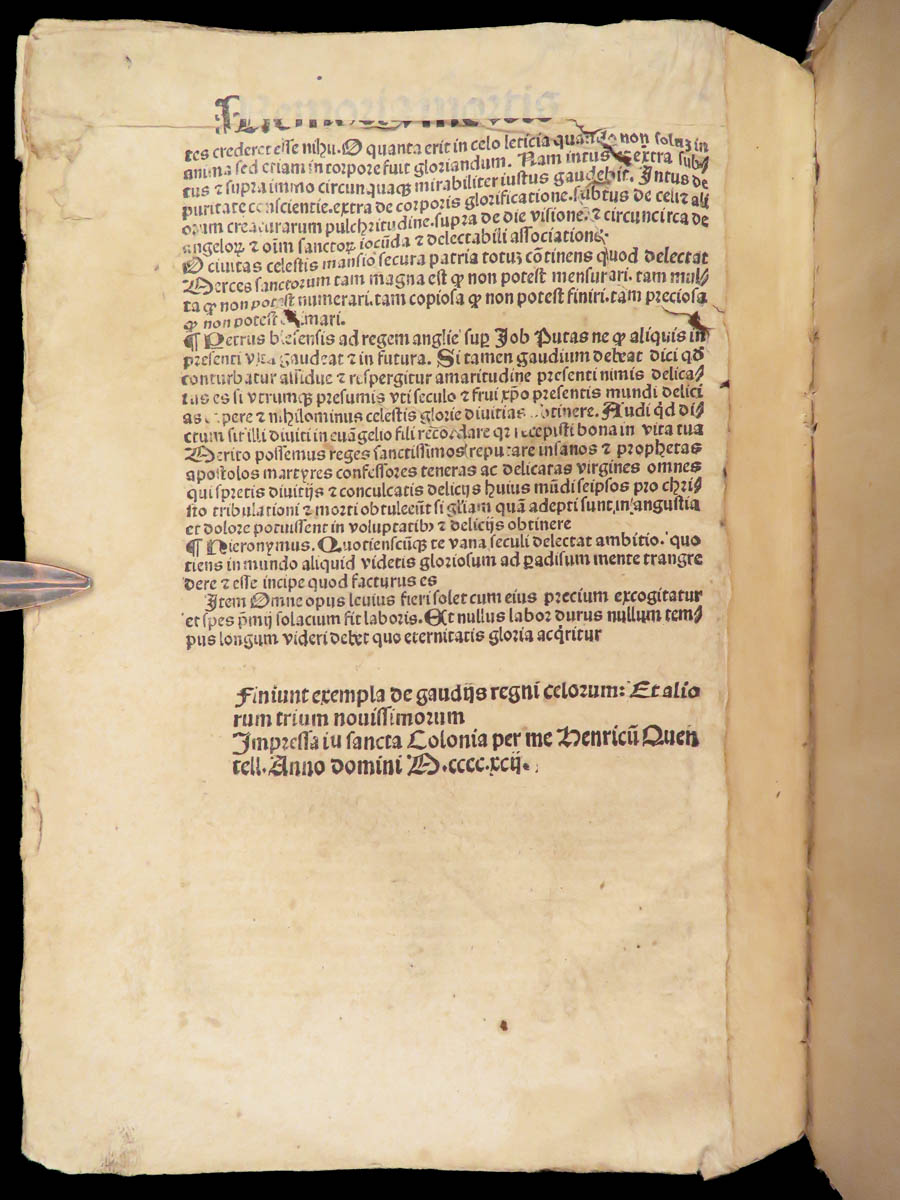 tes crederet esse nihil. O quanta erit in celo leticia quando non soluz in
anima sed etiam in corpore fuit gloriandum. Nam intus et extra sub⸗
tus ⁊ supra immo circunquaqꝫ mirabiliter iustus gaudebit. Intus de
puritate conscientie. extra de corporis glorificatione. subtus de celi ⁊ ali
orum creaturarum pulchritudine. supra de die visione. ⁊ circuncirca de
angeloꝝ ⁊ oīm sanctoꝝ iocūda ⁊ delectabili associatione.
O ciuitas celestis mansio secura patria totuz cōtinens quod delectat
Merces sanctorum tam magna est ꝙ non potest mensurari. tam mul⸗
ta ꝙ non potest numerari. tam copiosa ꝙ non potest finiri. tam preciosa
ꝙ non potest mari.
¶ Petrus blesensis ad regem anglie suꝑ Job Putas ne ꝙ aliquis in
presenti vita gaudeat ⁊ in futura. Si tamen gaudium debeat dici qd̄
conturbatur assidue ⁊ respergitur amaritudine presenti nimis delica⸗
tus es si vtrumqꝫ presumis vti seculo ⁊ frui xp̄o presentis mundi delici
as pere ⁊ nihilominus celestis glorie diuitias obtinere. Audi qd̄ di⸗
ctum sit illi diuiti in euāgelio fili recordare qꝛ recepisti bona in vita tua
Merito possemus reges sanctissimos reputare insanos ⁊ prophetas
apostolos martyres confessores teneras ac delicatas virgines omnes
qui spretis diuitijs ⁊ conculcatis delicijs huius mūdi seipsos pro chri⸗
sto tribulationi ⁊ morti obtulerūt si gl̄iam quā adepti sunt in angustia
et dolore potuissent in voluptatibꝫ ⁊ delicijs obtinere
¶ Hieronymus. Quotienscūqꝫ te vana seculi delectat ambitio. quo
tiens in mundo aliquid videtis gloriosum ad ꝑadisum mente trangre
dere ⁊ esse incipe quod facturus es
Item Omne opus leuius fieri solet cum eius precium excogitatur
et spes p̄mij solacium fit laboris. Et nullus labor durus nullum tem⸗
pus longum videri debet quo eternitatis gloria acq̄ritur
Finiunt exempla de gaudijs regni celorum: Et alio
rum trium nouissimorum
Impressa iu sancta Colonia per me Henricū Quen
tell. Anno domini M.cccc.xcij.